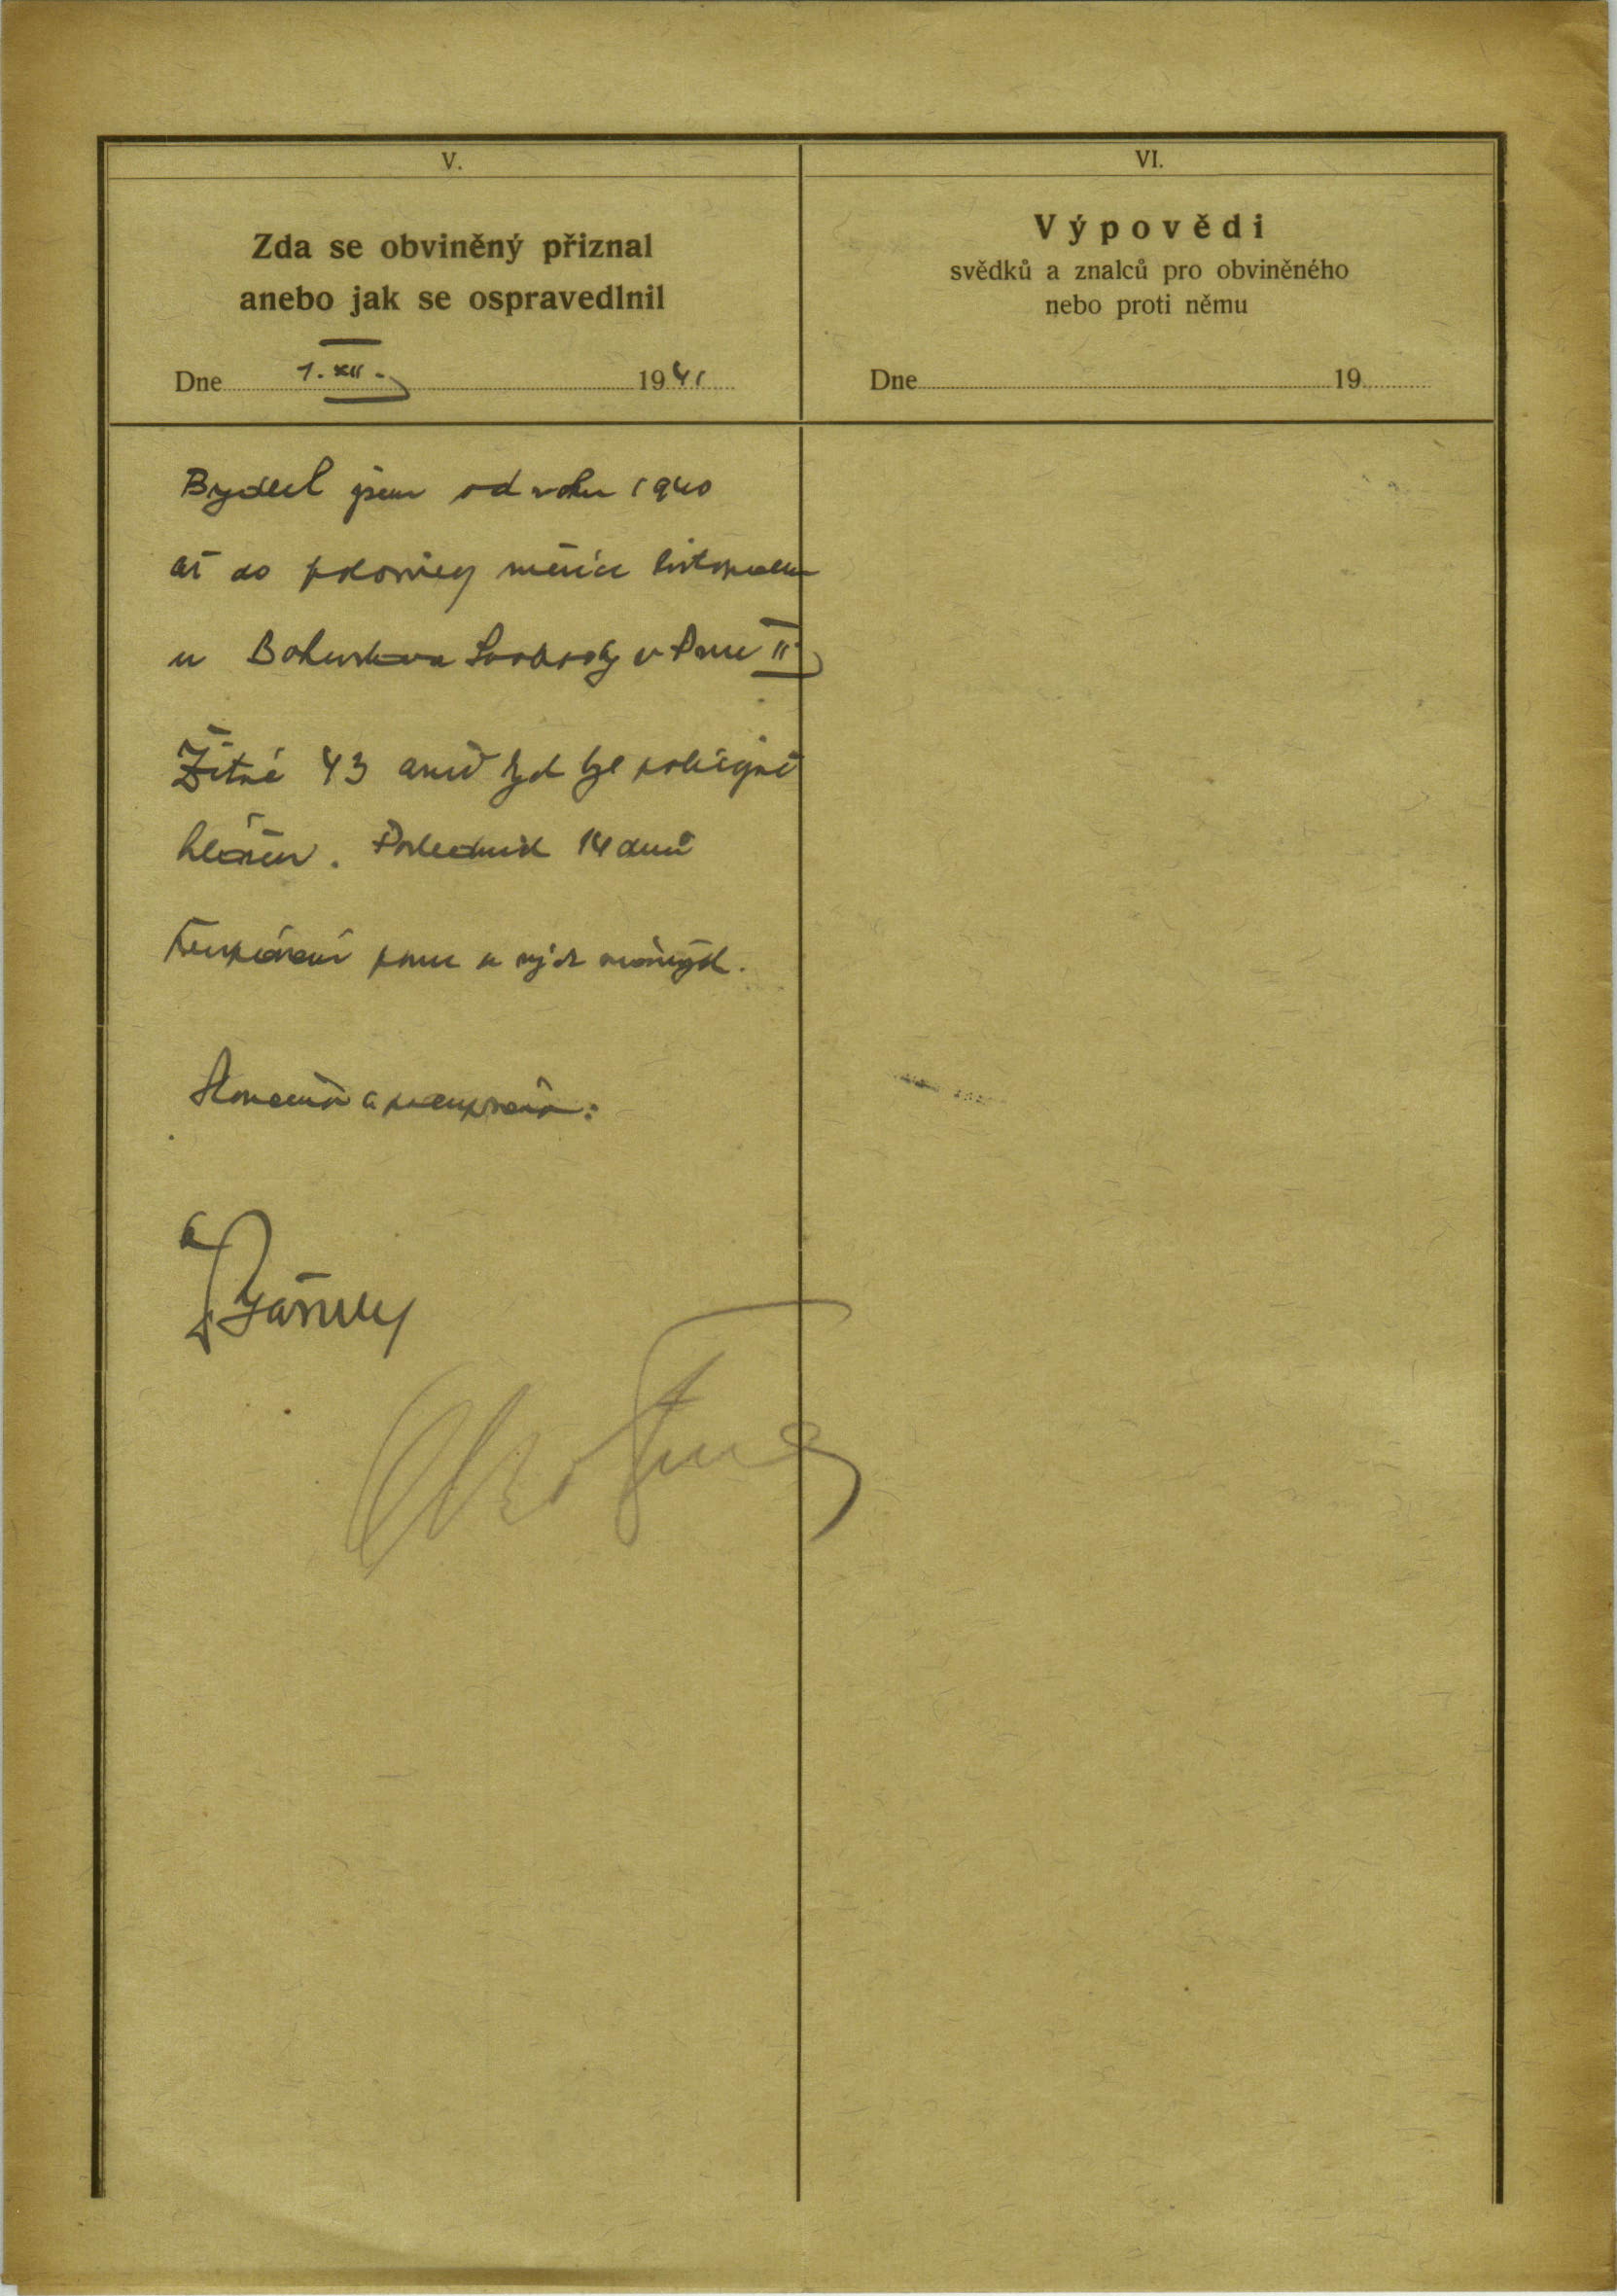 V.
Zda se obviněný přiznal
anebo jak se ospravedlnil
Dne 1. XII. 1941
Bydlel jsem od roku 1940
až do poloviny měsíce listopadu
u Bohuslava Svobody v Praze II
Žitná 43 aniž bych byl policejně
hlášen. Posledních 14 dnů
jsem u svých
Skončeno a podepsáno:
VI.
Výpovědi
svědků a znalců pro obviněného
nebo proti němu
Dne 19